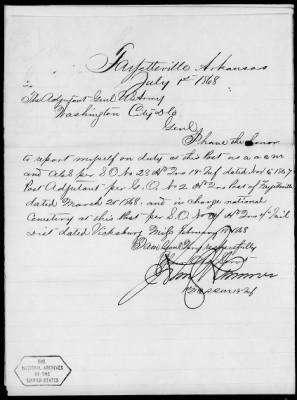 Fayetteville Arkansas
July 1st 1868
The Adjutant Genl US Army
Washington City D.C.
Genl
I have the honor
to report myself on duty at this Post as a a q m
and a.c.s. per S.O. No 28 Hd Qrs 19" Inf dated Nov 6" 1867
Post Adjutant per G.O. No 2 Hd Qrs Post of Fayetteville
dated March 20" 1868; and in charge national
Cemetery at this Post per S.O. No Hd Qrs 4" Mil
Dist dated Vicksburg Miss February 1868
I am Genl Very respectfully
19" Inf
THE
NATIONAL ARCHIVES
OF THE
UNITED STATES